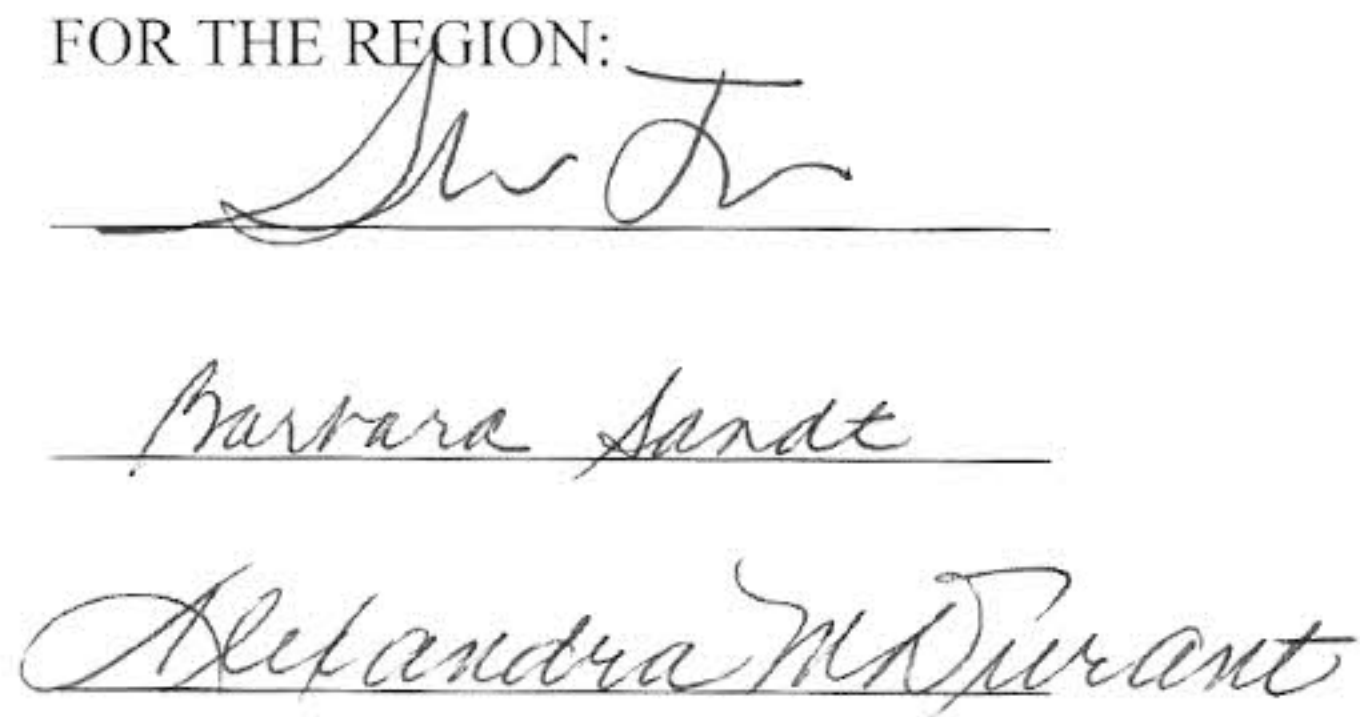 FOR THE REGION:
Barbara Sandt
Alexandra M Durant